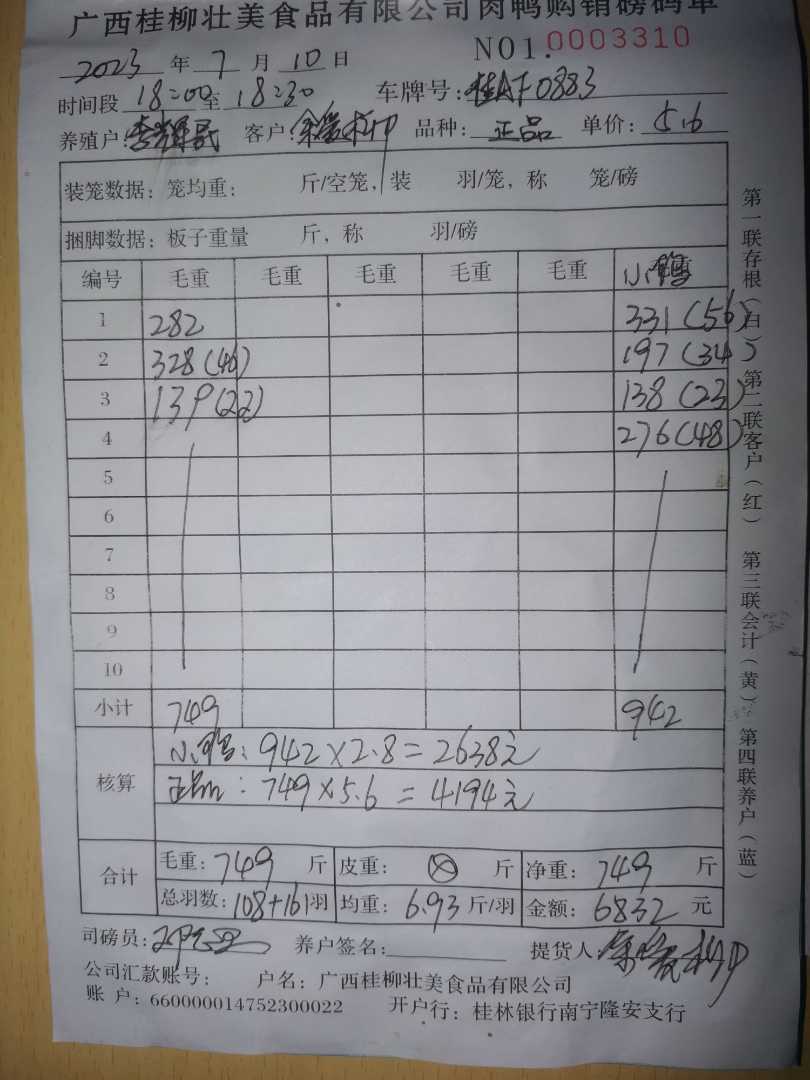 广西桂柳壮美食品有限公司肉鸭购销磅码单
NO1.0003310
2023 年 7 月 10 日
时间段 18:00 至 18:30 车牌号: 桂AF0883
养殖户: 李辉 客户: 品种: 正品 单价: 5.6
装笼数据: 笼均重: 斤/空笼, 装 羽/笼, 称 笼/磅
捆脚数据: 板子重量 斤, 称 羽/磅
编号 毛重 毛重 毛重 毛重 毛重 小鸭
1 282 331(56)
2 328(46) 197(34)
3 139(22) 138(23)
4 276(48)
5
6
7
8
9
10
小计 749 942
核算 小鸭: 942×2.8=2638元
正品: 749×5.6=4194元
合计 毛重: 749 斤 皮重: ⊗ 斤 净重: 749 斤
总羽数: 108+161羽 均重: 6.93 斤/羽 金额: 6832 元
司磅员: 养户签名: 提货人
公司汇款账号: 户名: 广西桂柳壮美食品有限公司
账 户: 660000014752300022 开户行: 桂林银行南宁隆安支行
第一联存根(白) 第二联客户(红) 第三联会计(黄) 第四联养户(蓝)